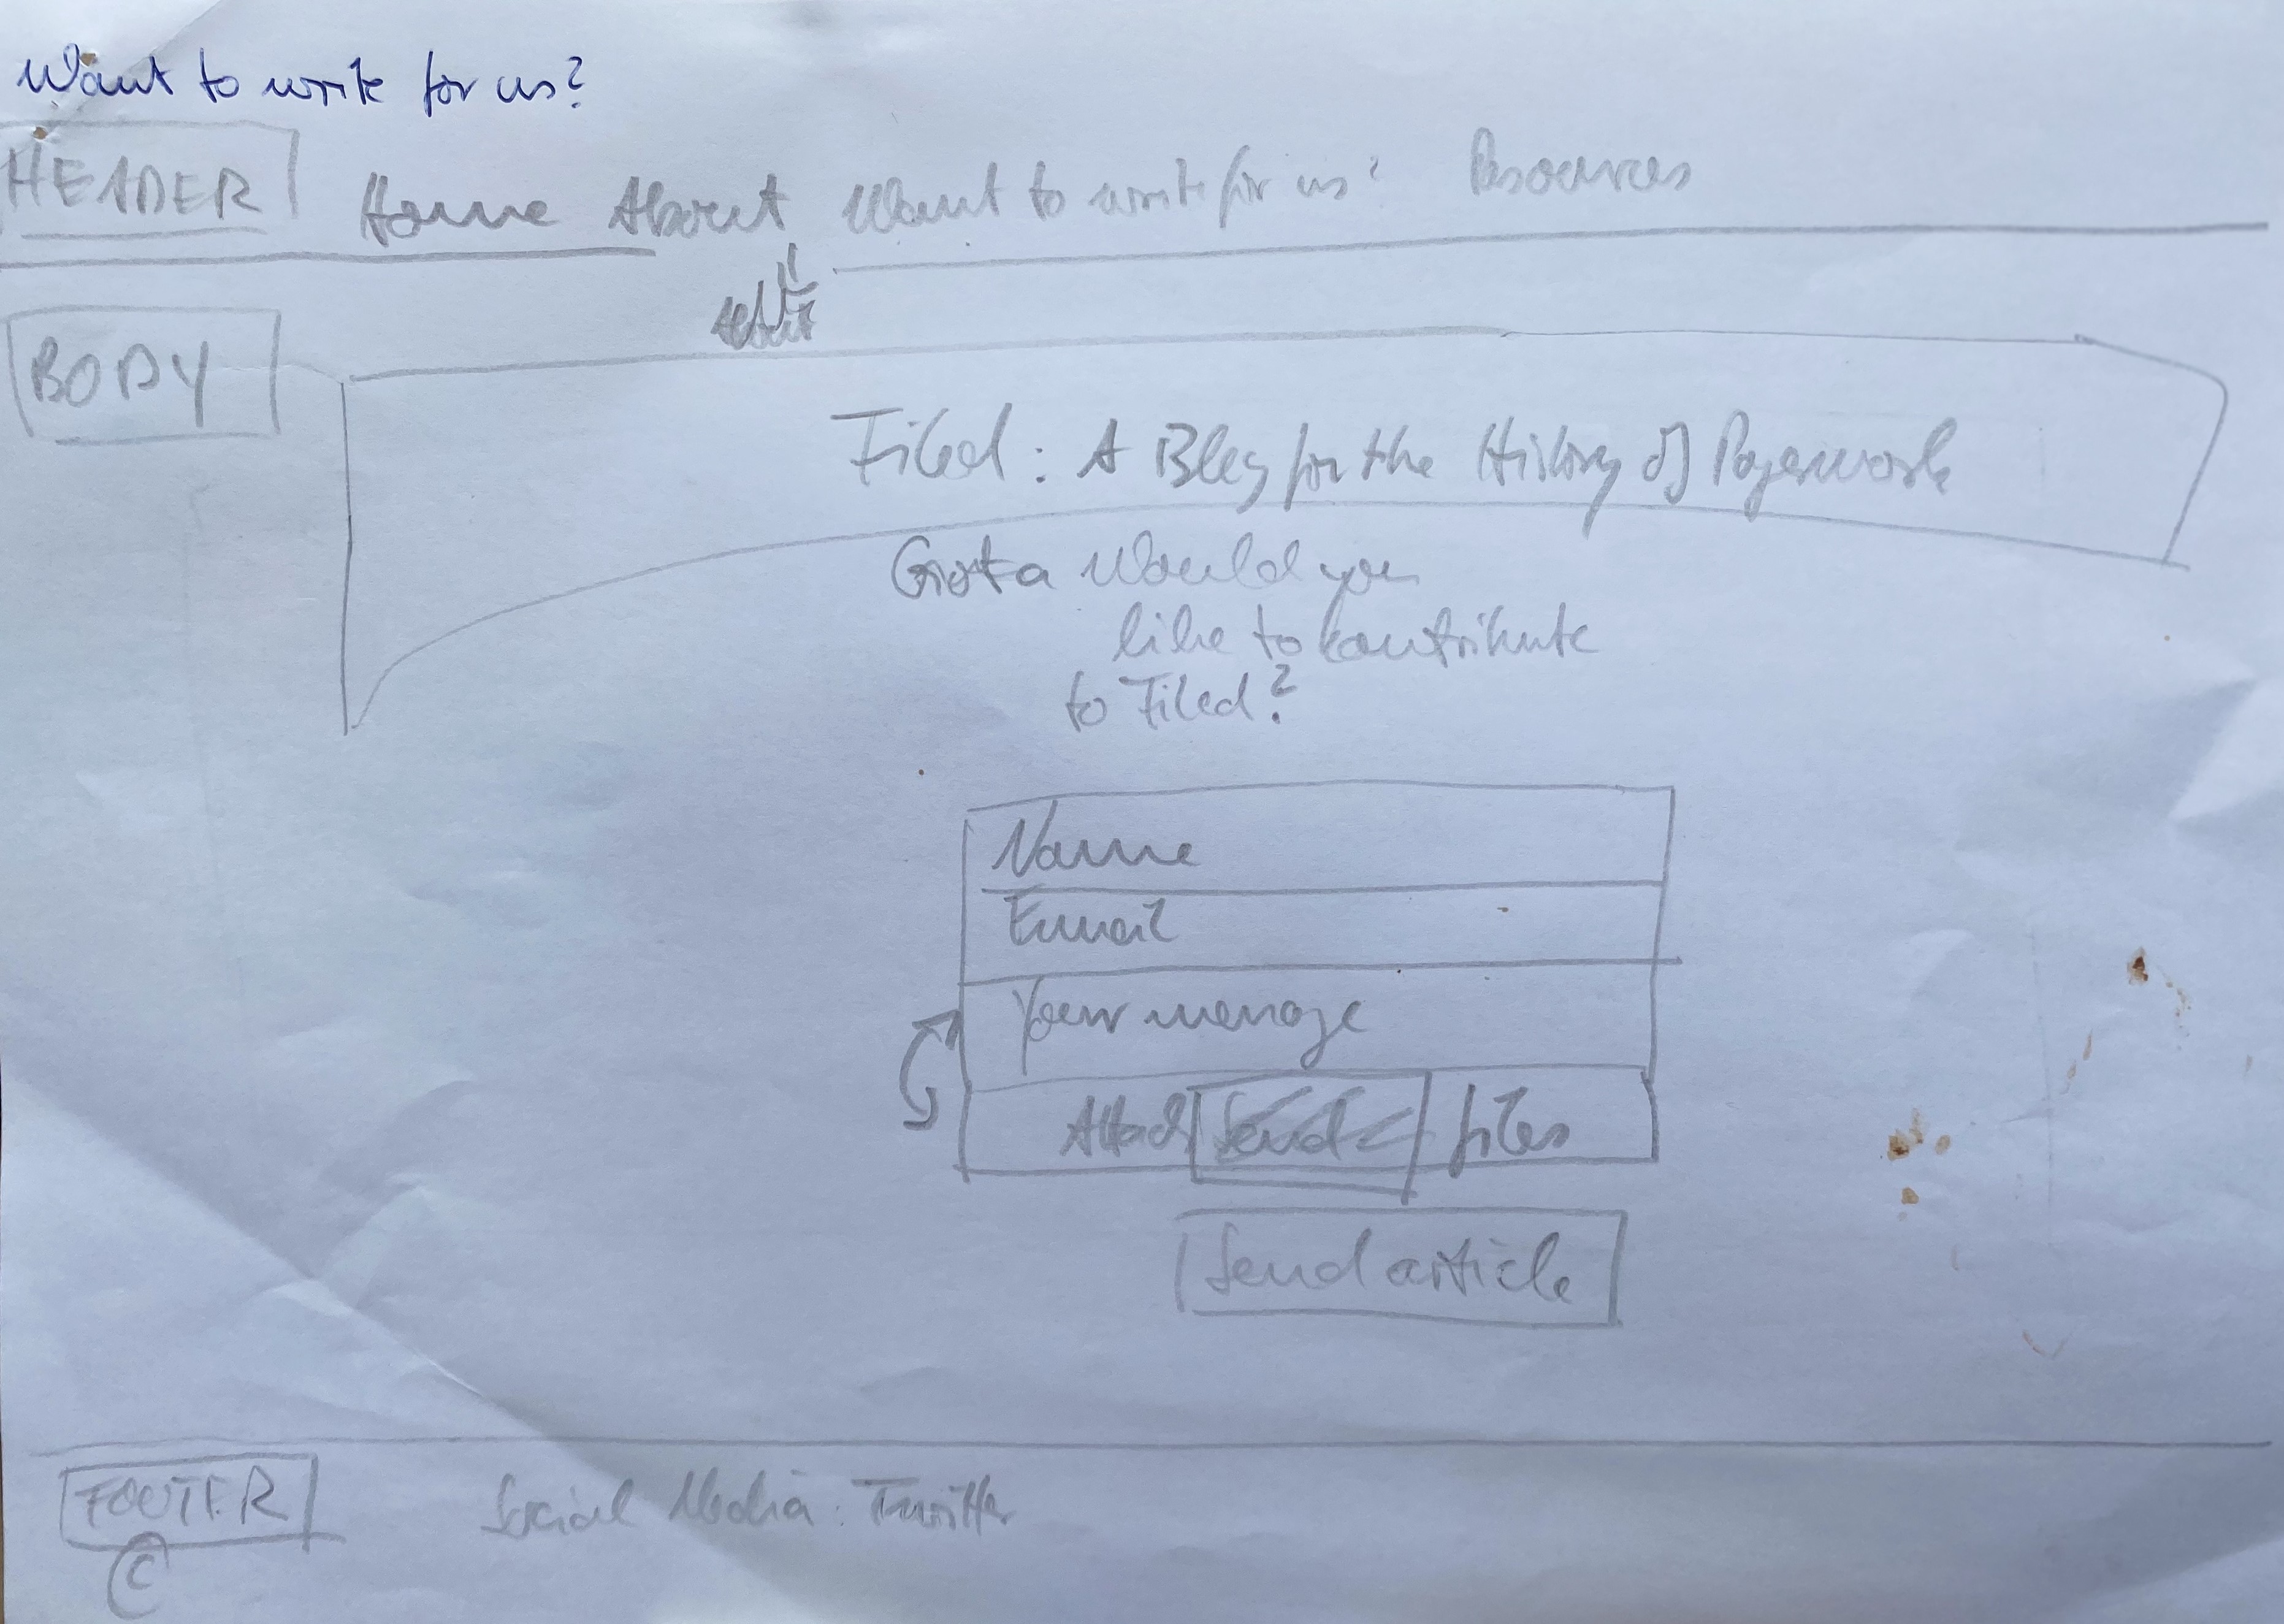 Want to write for us?
HEADER Home About Want to write for us? Resources
About
BODY
Filed: A Blog for the History of Paperwork
Would you
like to contribute
to Filed?
Name
Email
Your message
Attach Send files
Send article
FOOTER Social Media: Twitter
©